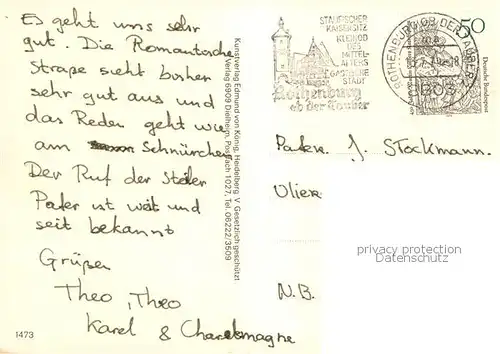 Es geht uns sehr
gut. Die Romantische
Straße sieht bisher
sehr gut aus und
das Reden geht wie
am Schnürchen
Der Ruf der
Pater ist weit und
seit bekannt
Grüßen
Theo, Theo
Karel & Charelsmagne
1473
Kunstverlag Edmund von König, Heidelberg V Gesetzlich geschützt
Verlag 6909 Dielheim, Postfach 1027, Tel. 06222/3509
STAUFISCHER
KAISERSITZ
KLEINOD
DES
MITTEL-
ALTERS
GASTLICHE
STADT
Rothenburg
ob der Tauber
ROTHENBURG OB DER TAUBER
8803
50
Deutsche Bundespost
Pater J. Stockmann.
N.B.
privacy protection
Datenschutz